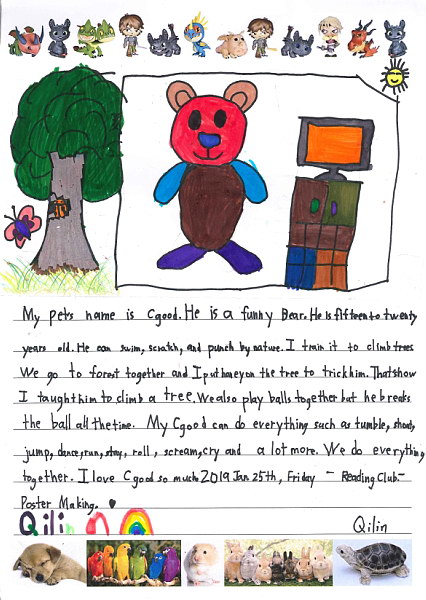 My pets name is Cgood. He is a funny Bear. He is fifteen to twenty
years old. He can swim, scratch, and punch by nature. I train it to climb trees
We go to forest together and I put honey on the tree to trick him. Thats how
I taught him to climb a tree. We also play balls together but he breaks
the ball all the time. My Cgood can do everything such as tumble, shout,
jump, dance, run, stay, roll, scream, cry and a lot more. We do everything
together. I love Cgood so much. 2019 Jan. 25th, Friday - Reading Club-
Poster Making.
Qilin
Qilin